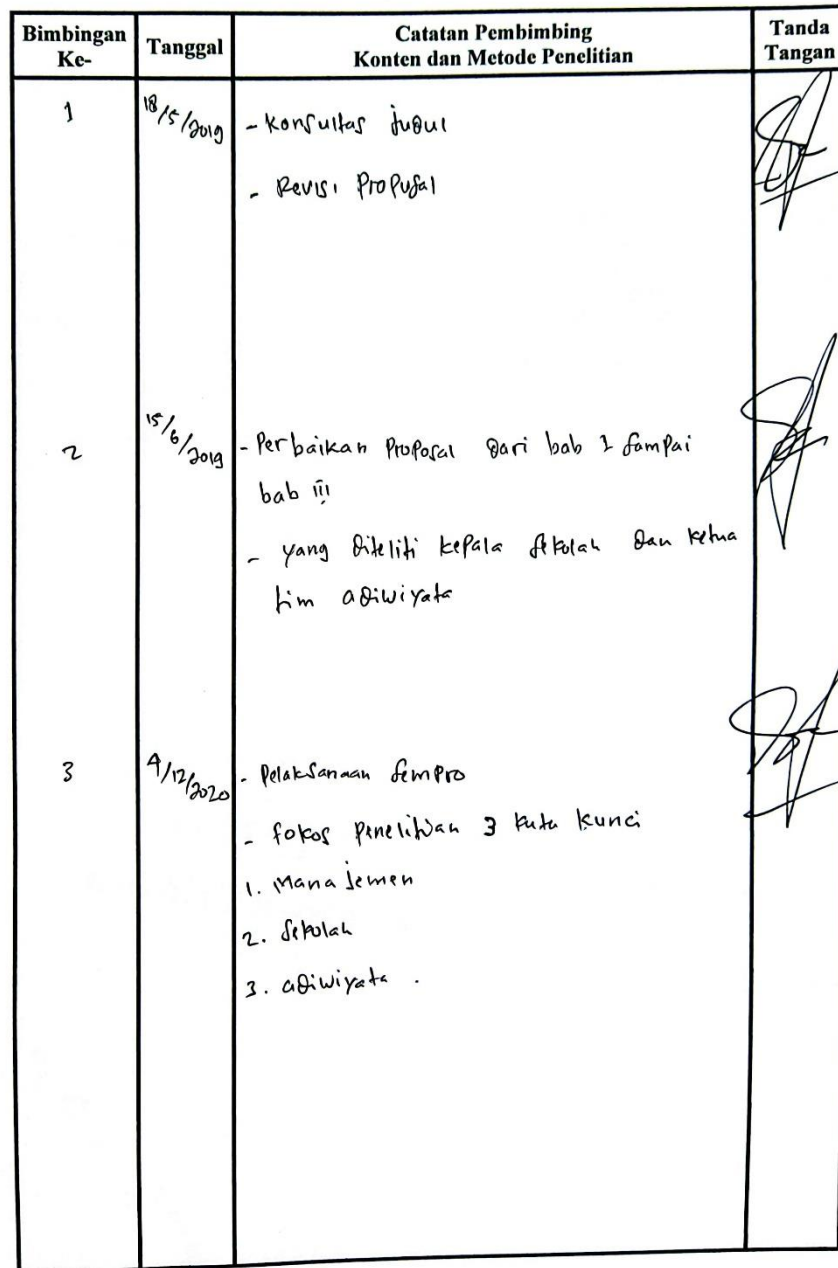 Bimbingan Ke-
Tanggal
Catatan Pembimbing
Konten dan Metode Penelitian
Tanda Tangan
1
18/5/2019
- Konsultas judul
- Revisi Propusal
2
15/6/2019
- Perbaikan Proposal dari bab 1 sampai
bab iii
- yang diteliti kepala sekolah dan ketua
tim adiwiyata
3
4/12/2020
- Pelaksanaan sempro
- fokos penelitian 3 kata kunci
1. Manajemen
2. Sekolah
3. adiwiyata .